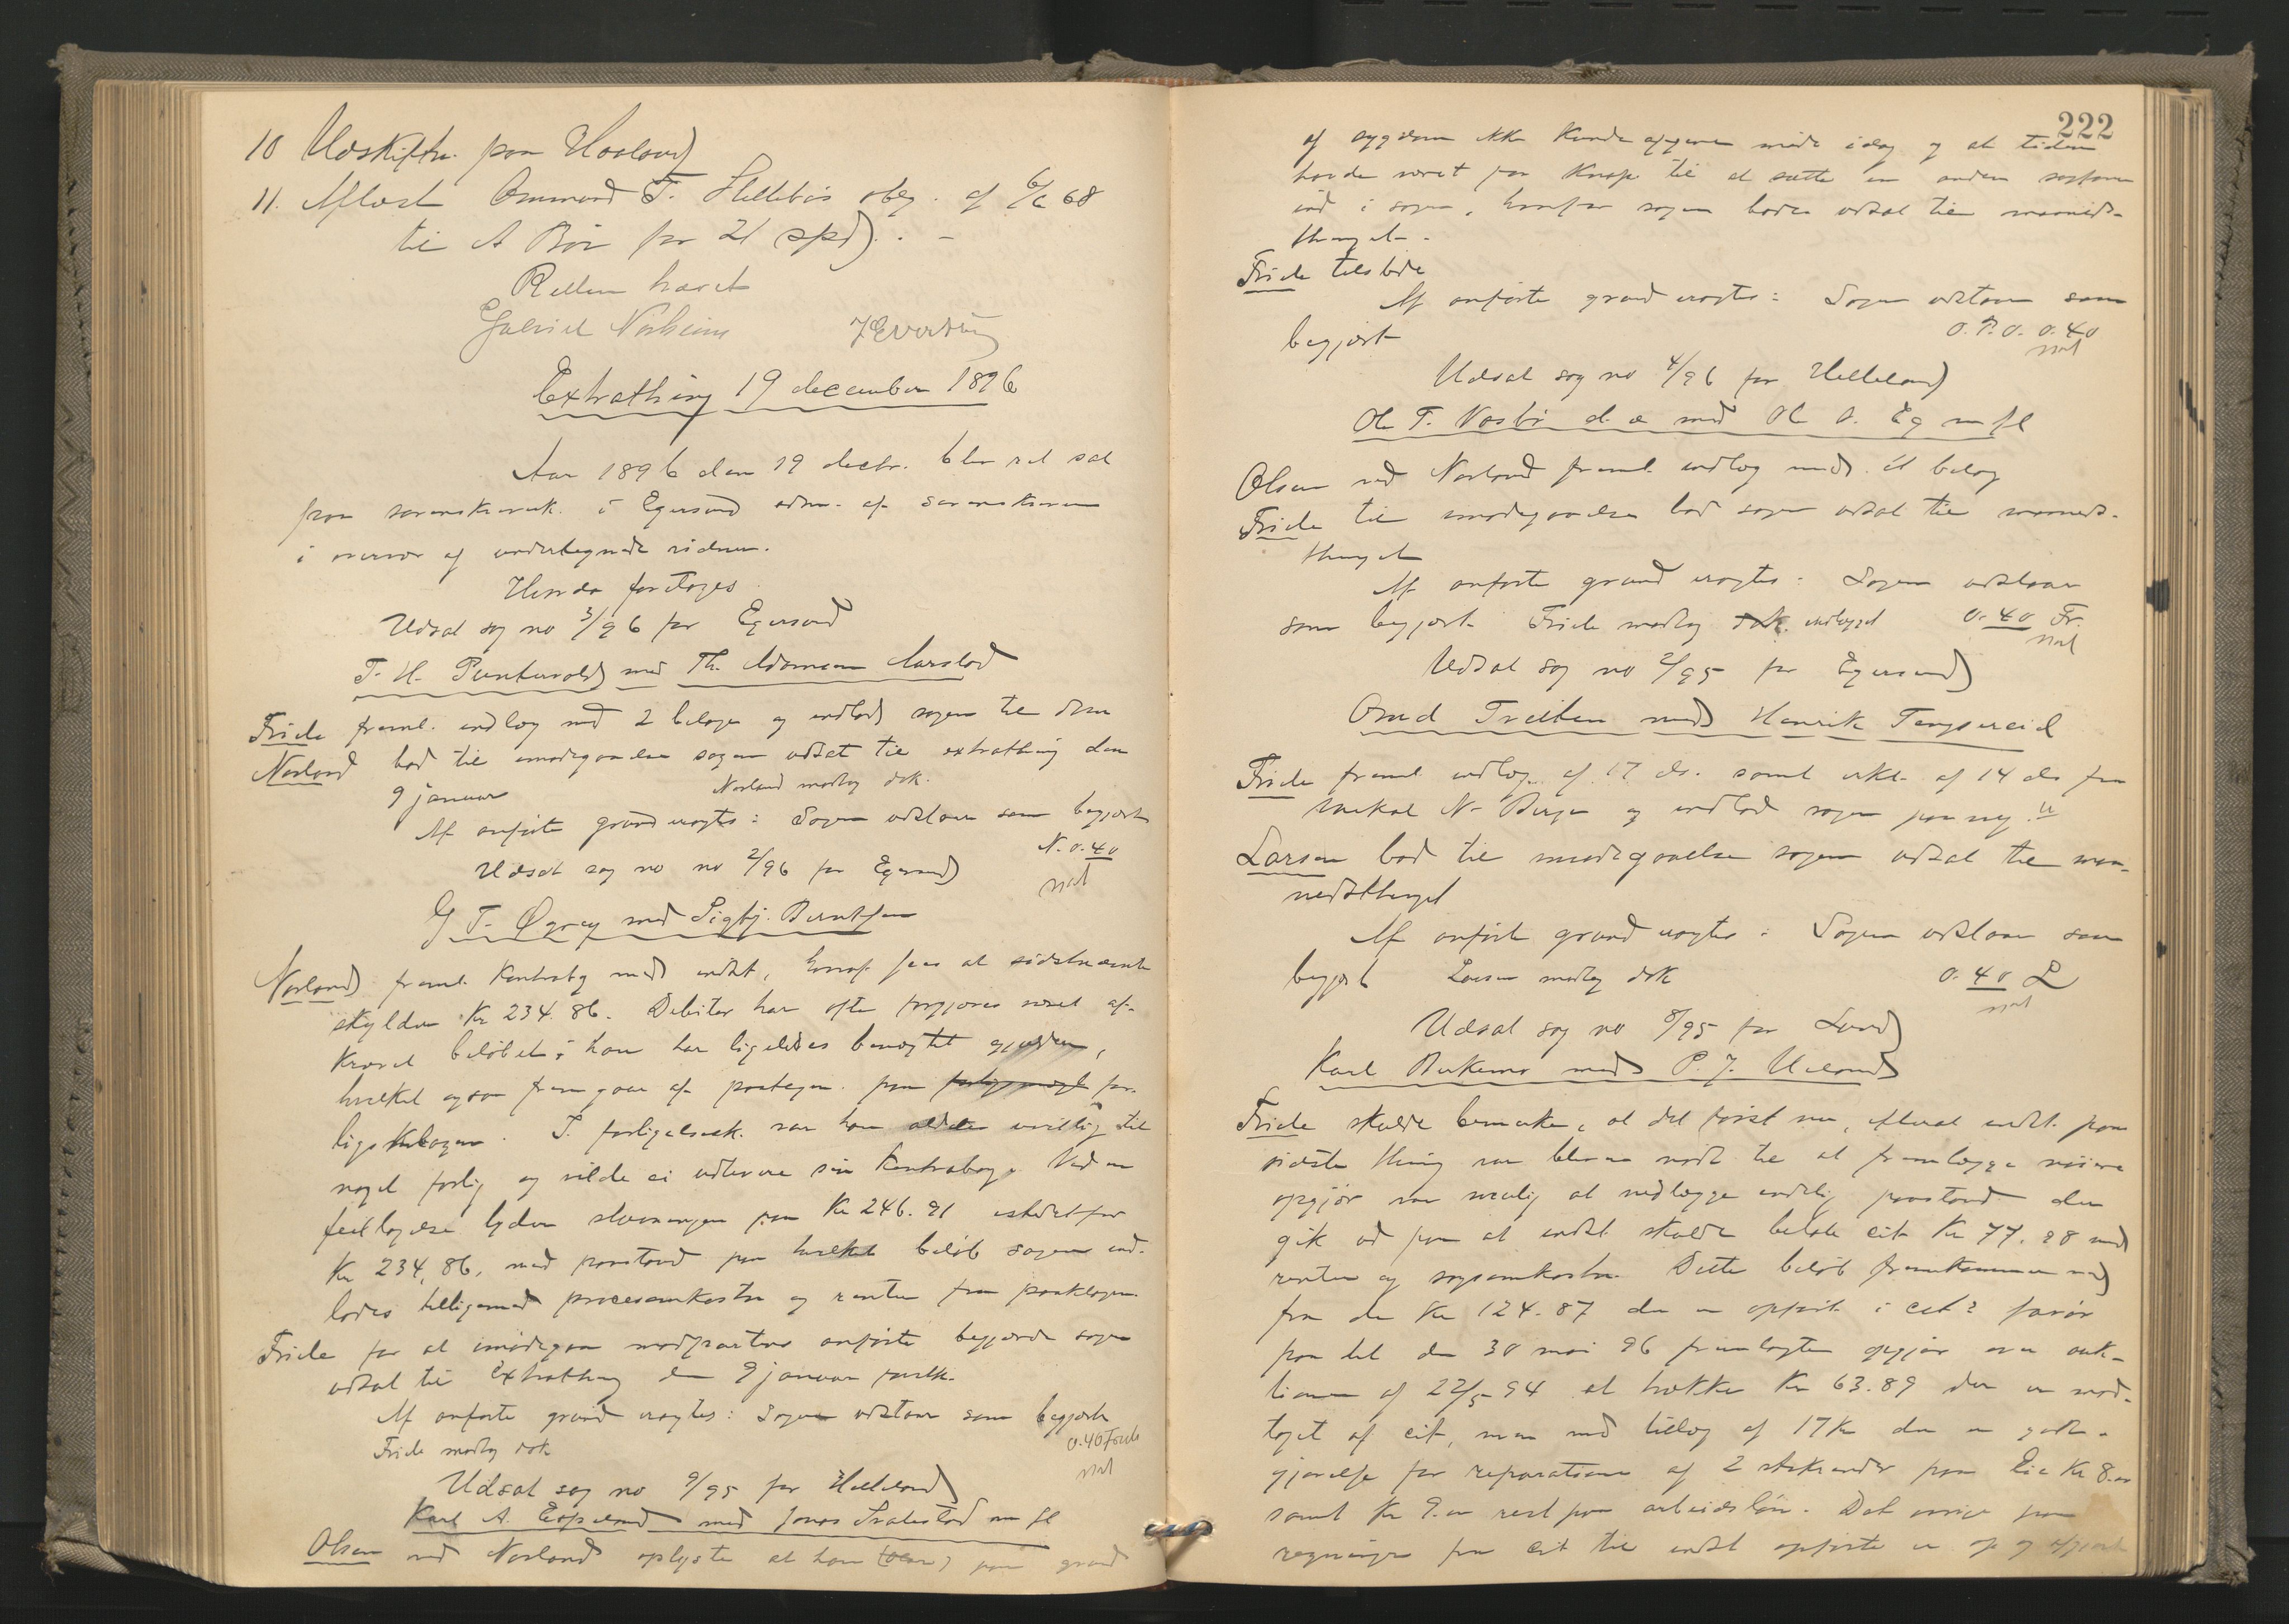 10 Udskiftn. paa Haaland
11. Aflæst Ommund T. Hellebøs obl. af 6/6 68
til A Bøe for 21 spd. . –
Retten hævet
Gabriel Norheim
Extrathing 19 december 1896
Aar 1896 den 19 decbr. blev ret sat
paa sorenskriverk. i Egersund adm. af sorenskriveren
i overvær af undertegnede vidner.
Hvorda foretoges
Udsat sag no 3/96 for Egersund
T. H. Puntervold med Th. Adamsen Aarstad
Friele freml. indlæg med 2 bilage og indlod sagen til dom
Norland bad til imødegaaelse sagen udsat til extrathing den
9 januar Norland modtog dok.
Af anførte grund vragtes: Sagen udstaar som begjært
N. 0.40
not
Udsat sag no no 2/96 for Egersund
G T. Øgrey med Sigbj. Berntsen
Norland freml. kontrabog med indst, hvoraf sees at sidstnævnte
skylder Kr 234.86. Debitor har ofte forgjæves været af-
krævet beløbet; han har ligeledes benægtet gjælden,
hvilket ogsaa fremgaar af paategn. paa for-
ligsklagen. I forligelsesk. var han aldeles uvillig til
noget forlig og vilde ei udlevere sin kontrabog. Ved en
feiltagelse lyder stævningen paa Kr 246.91 istedetfor
Kr 234,86, med paastand paa hvilket beløb sagen ind-
lades tilligemed procesomkostn og renter fra paaklagen.
Friele for at imødegaa modpartens anførte begjærede sagen
udsat til extrathing den 9 januar førstk.
Af anførte grund vragtes: Sagen udstaar som begjært
Friele modtog dok 0.40 Friele
not
Udsat sag no 9/95 for Helleland
Karl A. Espeland med Jonas Tralestad m fl
Olsen ved Norland oplyste at han (Olsen) paa grund
222
af sygdom ikke kunde afgive møde idag og at tiden
havde været for knap til at sætte en anden sagfører
ind i sagen, hvorfor sagen bades udsat til maaneds-
thinget.
Friele tilstede
Af anførte grund vragtes: Sagen udstaar som
begjært 0.40
not
Udsat sag no 4/96 for Helleland
Ole T. Nesbø d. æ med Ole O. Eg m fl
Olsen ved Norland freml. indlæg med et bilag
Friele til imødegaaelse bad sagen udsat til maaneds-
thinget
Af anførte grund vragtes: Sagen udstaar
som begjært Friele modtog dok. indlægget 0.40 Fr.
not
Udsat sag no 2/95 for Egersund
Omd Tveiten med Henrik Tengsareid
Friele freml indlæg af 17 ds. samt erkl. af 14 ds fra
Mikal N. Berge og indlod sagen paa ny
Larsen bad til imødegaaelse sagen udsat til maa-
nedsthinget
Af anførte grund vragtes: Sagen udstaar som
begjært Larsen modtog dok 0.40 L
not
Udsat sag no 8/95 for Lund
Karl Birkemo med P. J. Ueland
Friele skulde bemærke, at det først nu, efterat indst. paa
sidste thing var bleven nødt til at fremlægge nøiere
opgjør var mulig at nedlægge endelig paastand der
gik ud paa at indst skulde betale cit Kr 77.98 med
renter og sagsomkostn. Dette beløb fremkommer ved
fra de Kr 124.87 der er opført i cit: favør
paa det den 30 mai 96 fremlagte opgjør over auk-
tionen af 22/5 94 at trække Kr 63.89 der er mod-
taget af cit, men med tillæg af 17 Kr der er godt-
gjørelse for reparationen af 2 paa Lie Kr 8.00
samt Kr 9.00 rest paa arbeidsløn. Det øvrige paa
regningen fra cit til indst opførte er op og afgjort